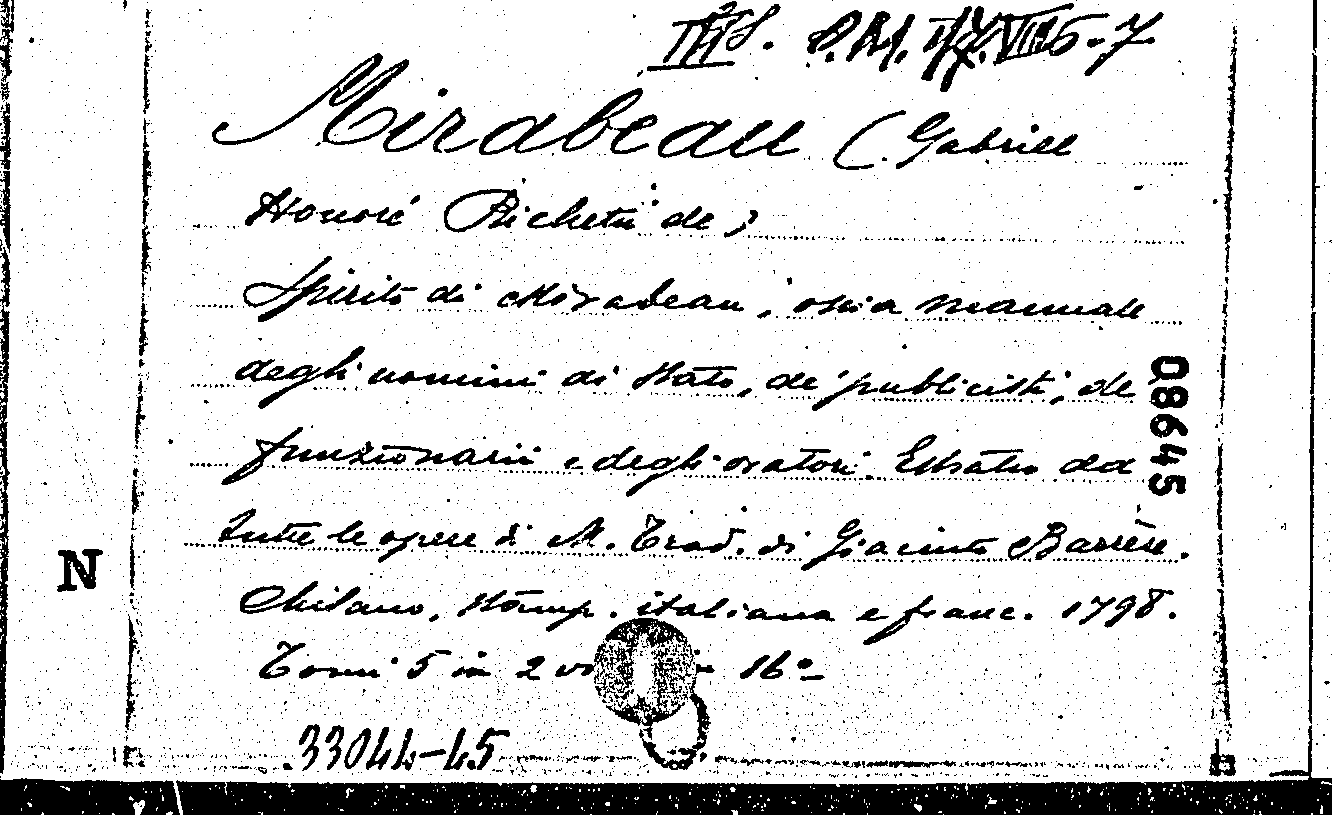 Mirabeau (Gabriele
Honoré Richetti de)
Spirito di Mirabeau, ossia manuale
degli uomini di Stato, de' publicisti, de
funzionarii e degli oratori. Estratto da
tutte le opere di M. Trad. di Giacinto Barrère.
Milano, Stamp. italiana e franc. 1798.
Tomi 5 in 2 16°
33044-45
08645
N